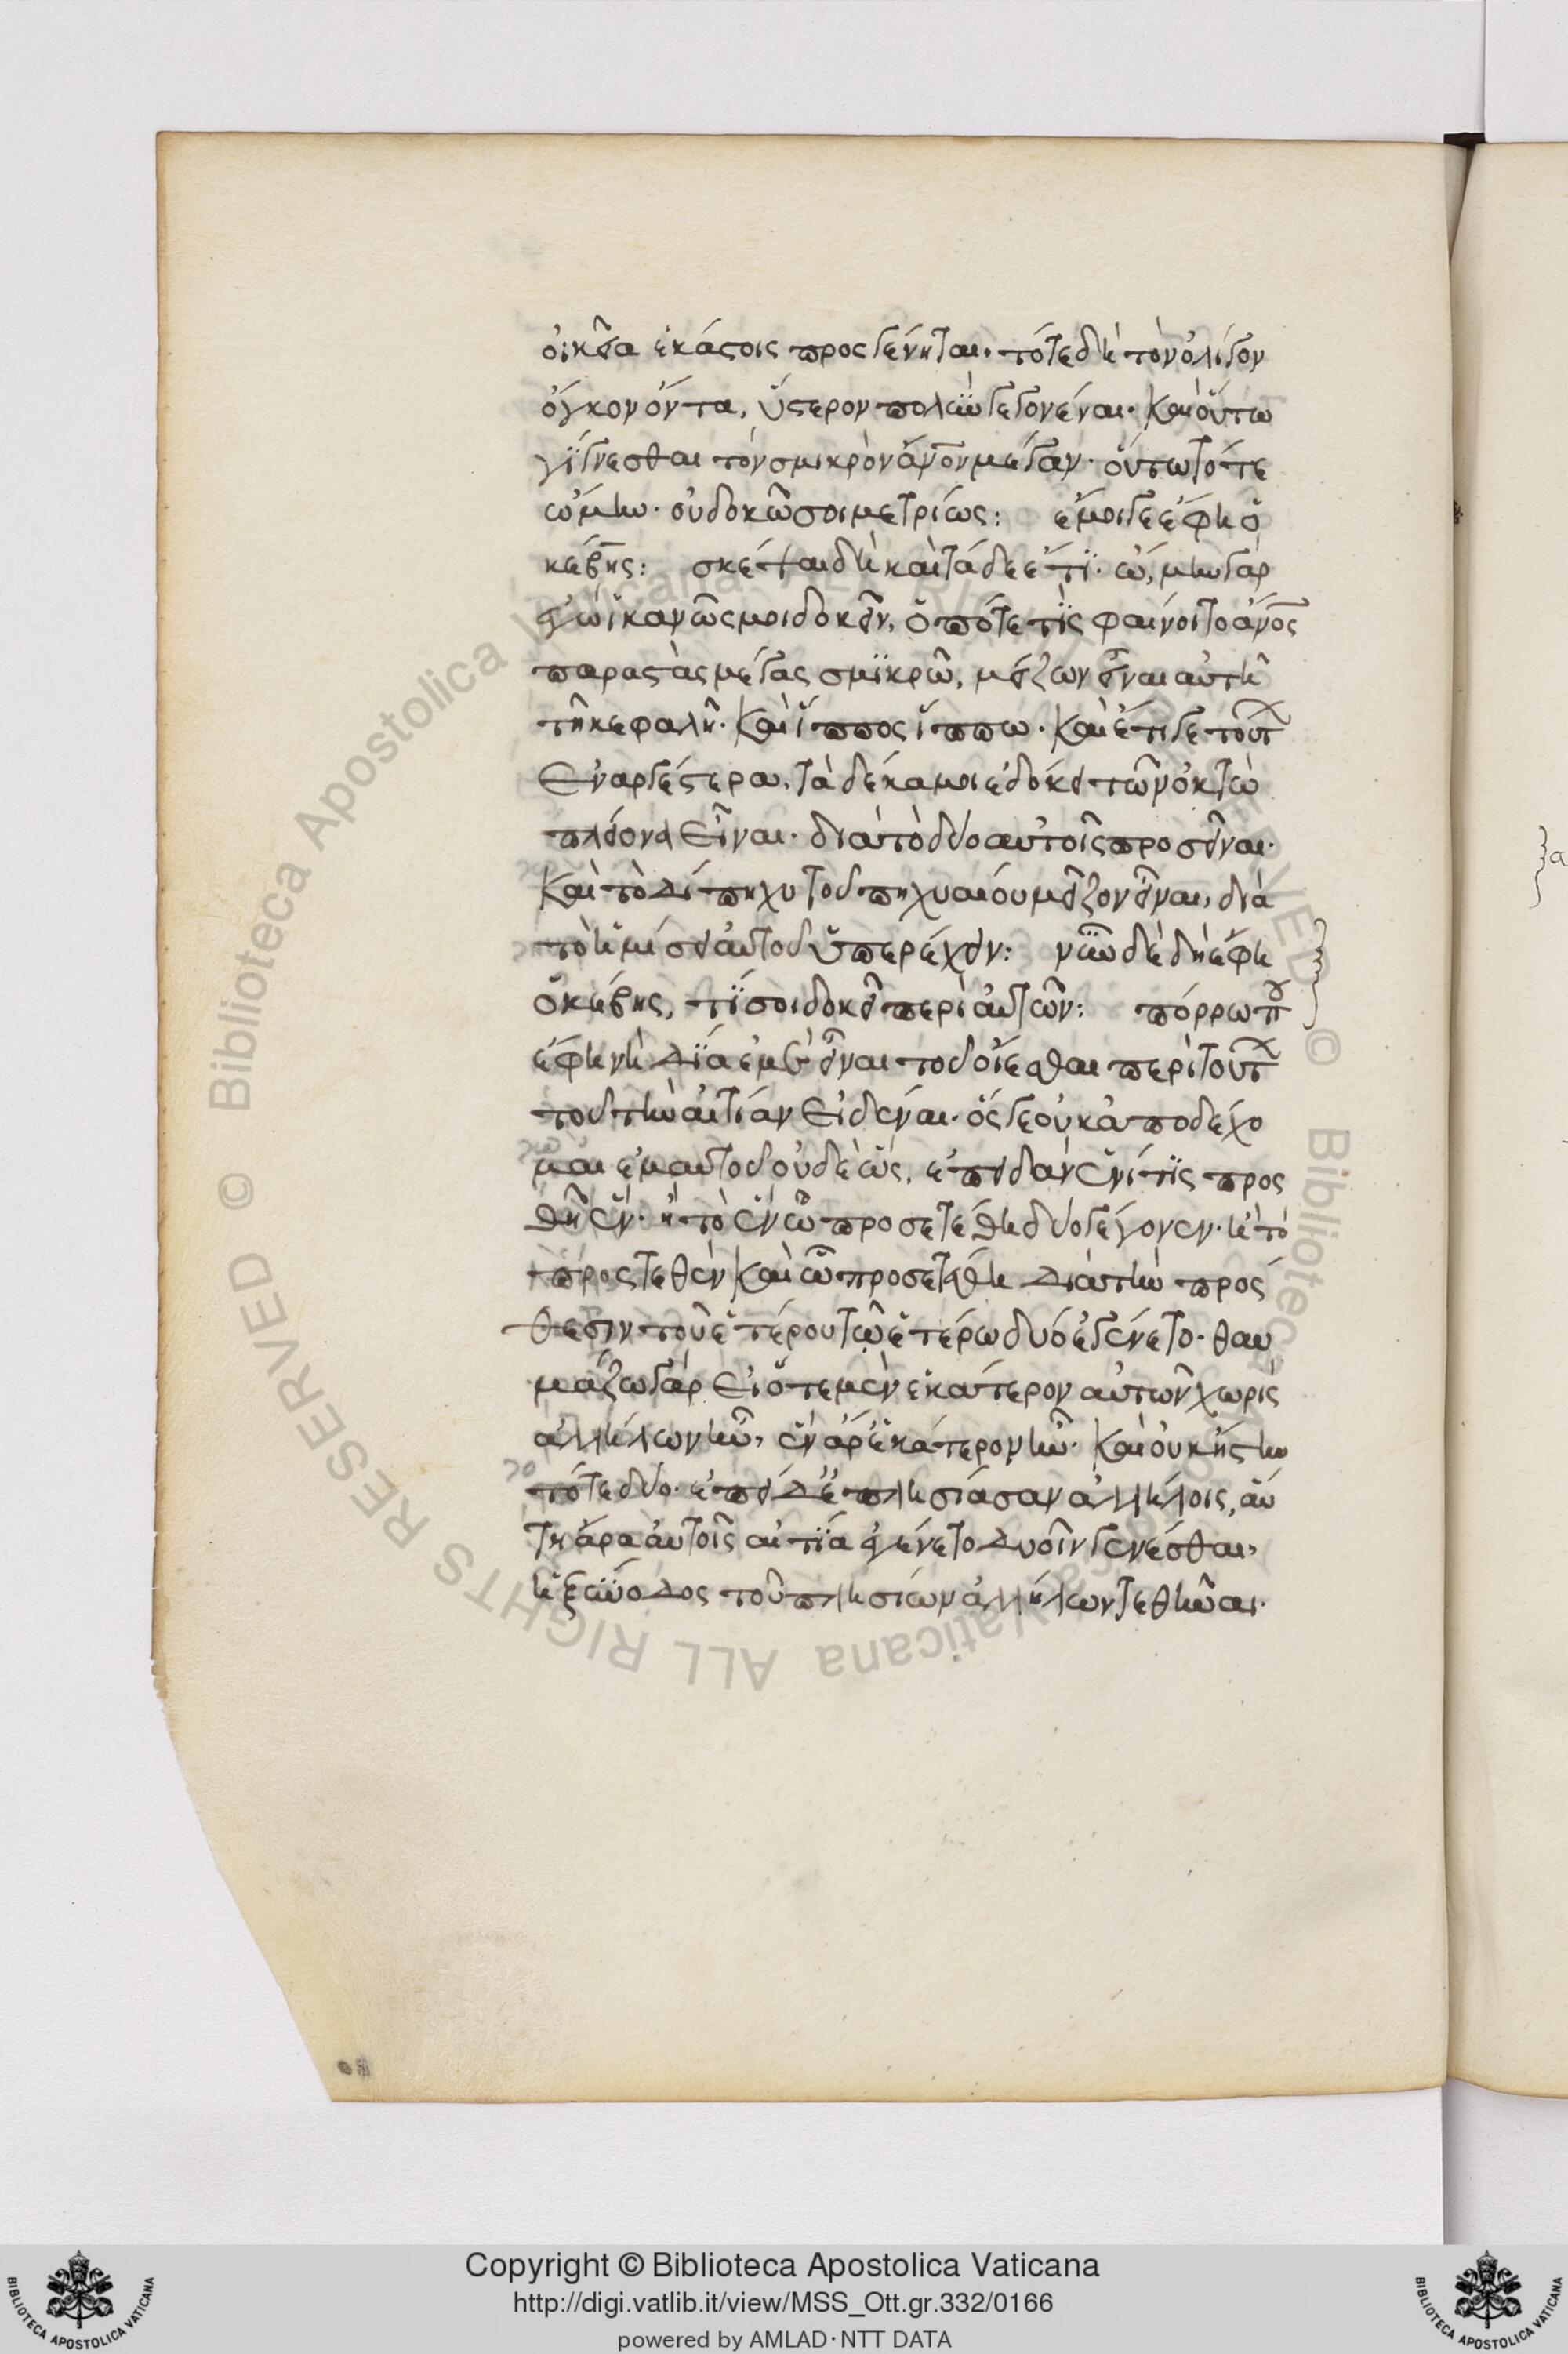 οἰκεῖα ἑκάστοις προσγένηται· τότε δὴ τὸν ὀλίγον
ὄγκον ὄντα, ὕστερον πολὺν γεγονέναι· καὶ οὕτω
γίγνεσθαι τὸν σμικρὸν ἄνον μέγαν· οὕτω τότε
ὤμην· οὐ δοκῶ σοι μετρίως: ἔμοιγε ἔφη ὁ
κέβης: σκέψαι δὴ καὶ τάδε ἔτι· ὤμην γὰρ
ἐγὼ ἱκανῶς μοι δοκεῖν, ὁπότε τις φαίνοιτο ἄνος
παραστὰς μέγας σμικρῶ, μείζων εἶναι αὐτῆ
τῆ κεφαλῆ· καὶ ἵππος ἵππω· καὶ ἔτι γε τούτ
ἐναργέστερα, τὰ δέκα μοι ἐδόκει τῶν ὀκτὼ
πλείονα εἶναι· διὰ τὸ δύο αὐτοῖς προσεῖναι·
καὶ τὸ δίπηχυ τοῦ πηχυαίου μεῖζον εἶναι, διὰ
τὸ ἡμίσει αὐτοῦ ὑπερέχειν: νῦν δὲ δὴ ἔφη
ὁ κέβης, τί σοι δοκεῖ περὶ αὐτῶν: πόρρω π
ἔφη νὴ δία ἐμὲ εἶναι τοῦ οἴεσθαι περὶ τούτ
του τὴν αἰτίαν εἰδέναι· ὅς γε οὐκ ἀποδέχο
μαι ἐμαυτοῦ οὐδὲ ὡς, ἐπειδὰν ἑνί τις προς
θῆ ἕν· ἢ τὸ ἓν ὧ προσετέθη δύο γέγονεν· ἢ τὸ
προστεθὲν καὶ ὧ προσετέθη διὰ τὴν πρόσ
θεσιν τοῦ ἑτέρου τῶ ἑτέρω δύο ἐγένετο· θαυ
μάζω γὰρ εἰ ὅτε μὲν ἑκάτερον αὐτῶν χωρὶς
ἀλλήλων ἦν, ἓν ἄρ ἑκάτερον ἦν· καὶ οὐκ ἤστην
τότε δύο· ἐπεὶ δ ἐπλησίασαν ἀλλήλοις, αὕ
τη ἄρα αὐτοῖς αἰτία ἐγένετο δυοῖν γενέσθαι,
ἡ ξύνοδος τοῦ πλησίων ἀλλήλων τεθῆναι·
Copyright © Biblioteca Apostolica Vaticana
http://digi.vatlib.it/view/MSS_Ott.gr.332/0166
powered by AMLAD·NTT DATA